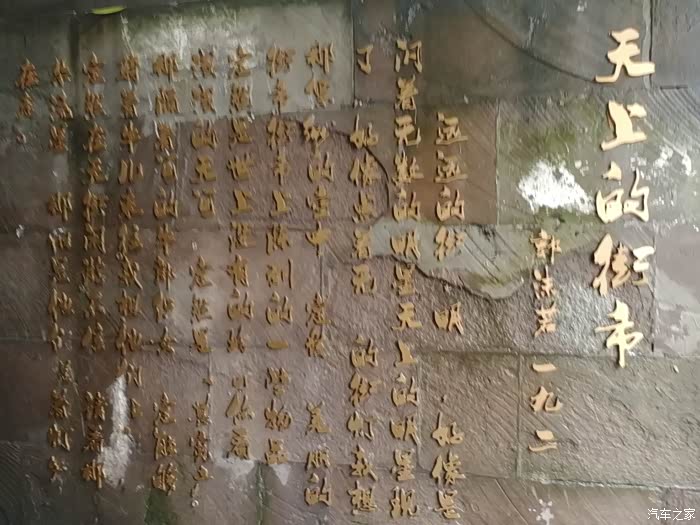 天上的街市
郭沫若 一九二
远远的街 明 好像是
闪着无数的明星天上的明星现
了 好像点着无 的街灯我想
那缥 的空中 定然 美丽的
街市街市上陈列的一些物品
定然是世上没有的珍 你看
浅浅的天河 定然是 甚宽广
那隔着河的牛郎织女 定能够
骑着牛儿来往我想他们
定然在天街闲游不信 请看那
朵流星 那怕是他们 着灯
在走
汽车之家